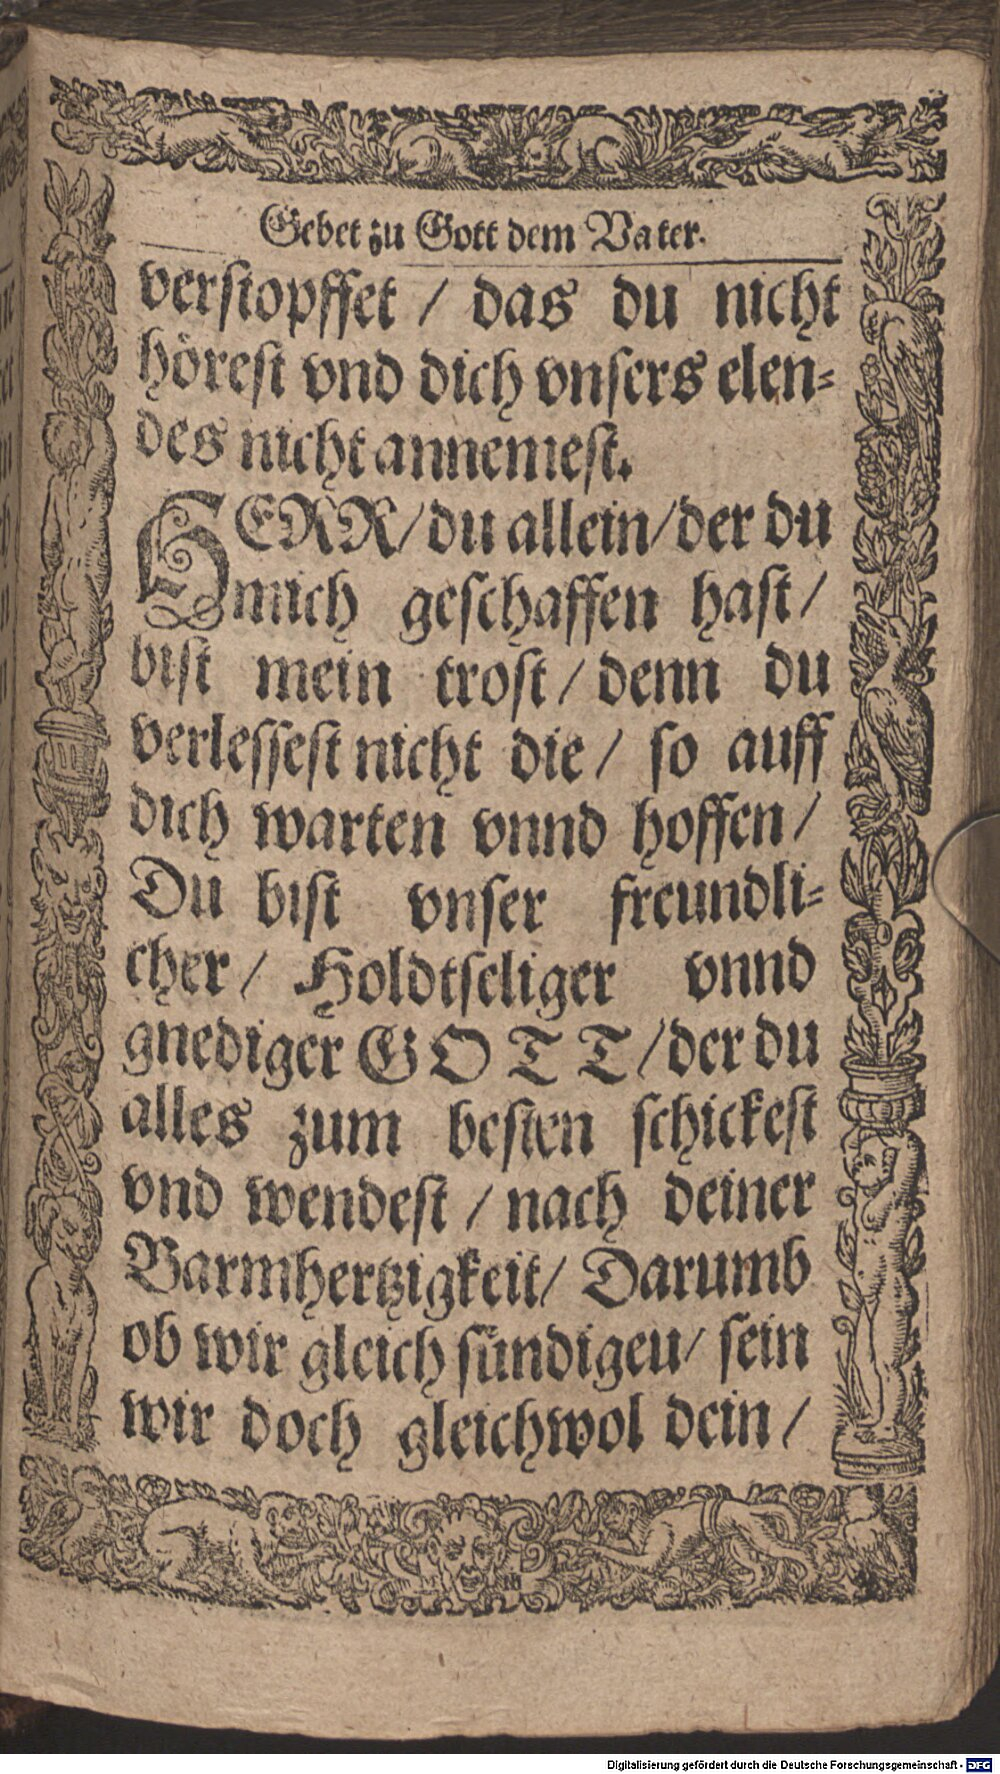 Gebet zu Gott dem Vater.
verstopffet / das du nicht
hörest vnd dich vnsers elen-
des nicht annemest.
HERR/ du allein/ der du
mich geschaffen hast /
bist mein trost / denn du
verlessest nicht die / so auff
dich warten vnnd hoffen /
Du bist vnser freundli-
cher / Holdtseliger vnnd
gnediger GOTT / der du
alles zum besten schickest
vnd wendest / nach deiner
Barmhertzigkeit / Darumb
ob wir gleich sündigeu / sein
wir doch gleichwol dein /
Digitalisierung gefördert durch die Deutsche Forschungsgemeinschaft - DFG